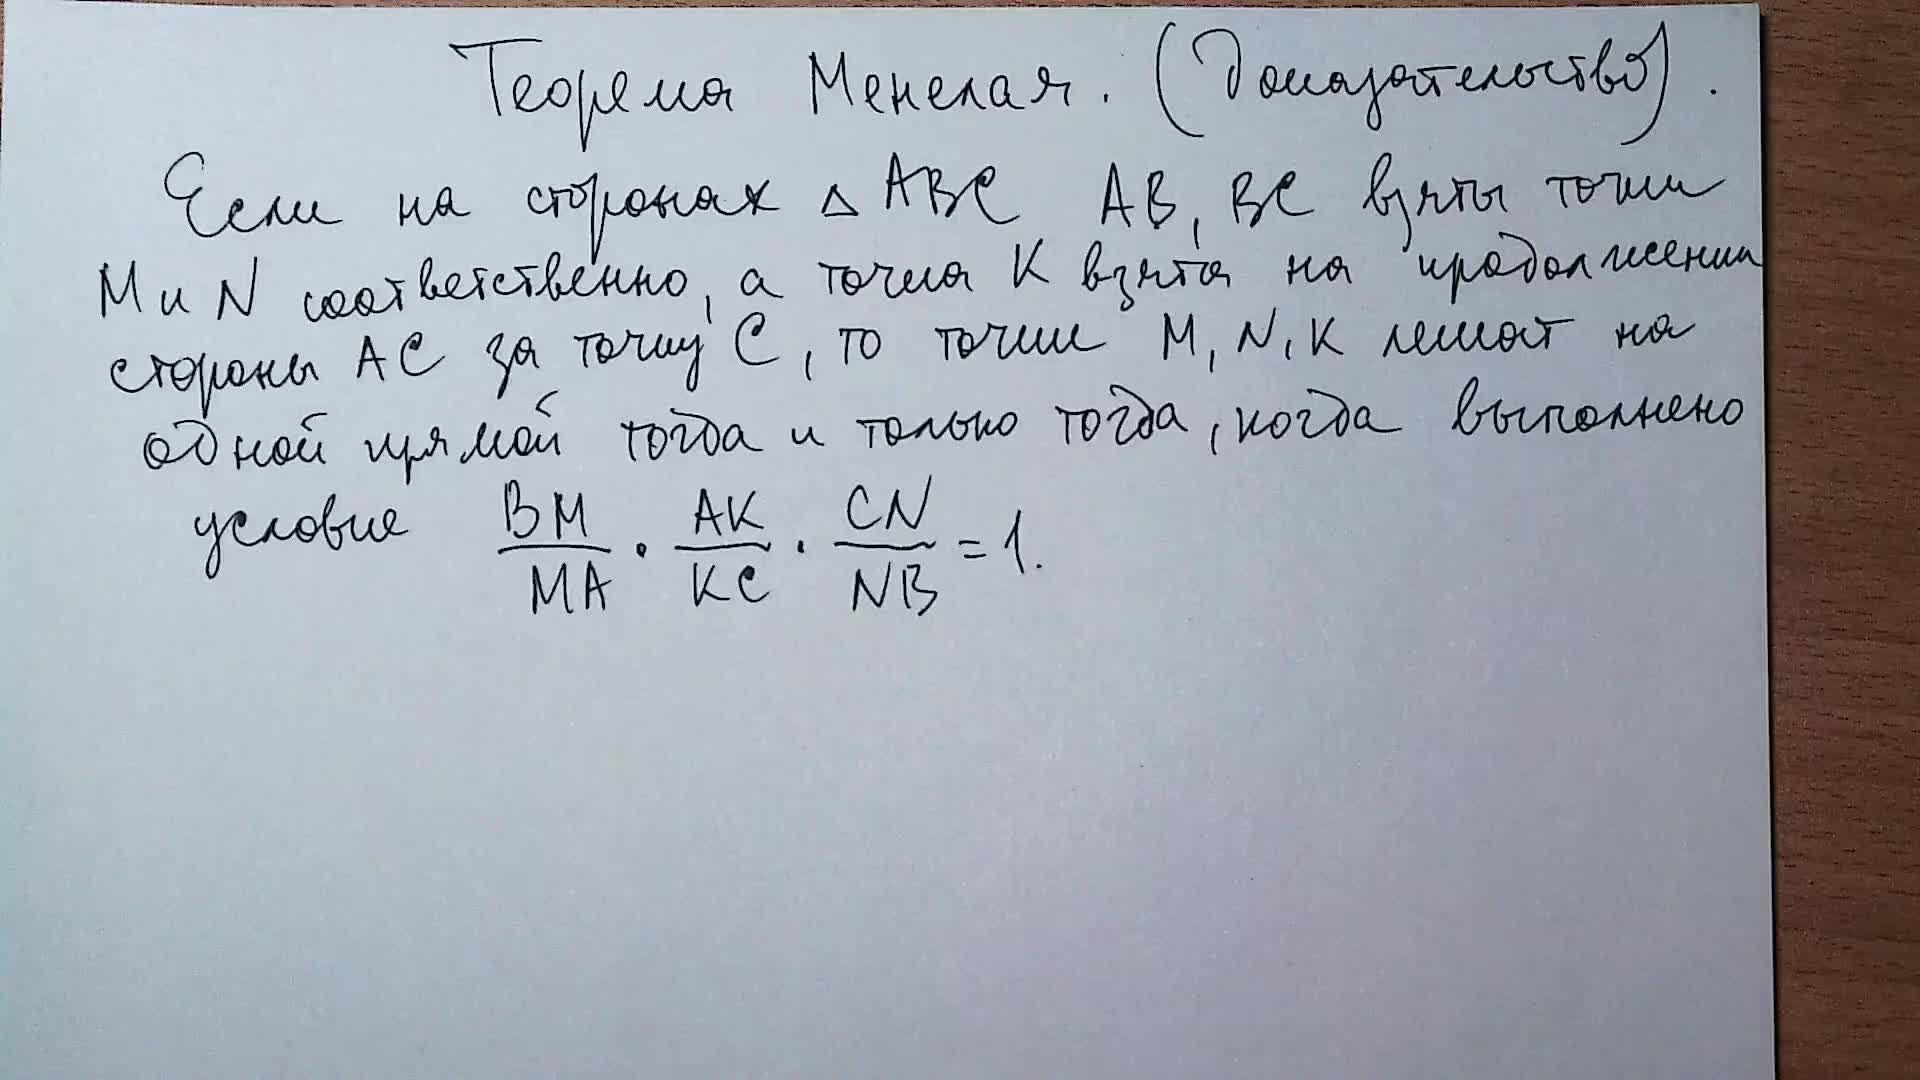 Теорема Менелая. (Доказательство).
Если на сторонах △ ABC AB, BC взяты точки
M и N соответственно, а точка K взята на продолжении
стороны AC за точку C, то точки M, N, K лежат на
одной прямой тогда и только тогда, когда выполнено
условие BM/MA · AK/KC · CN/NB = 1.